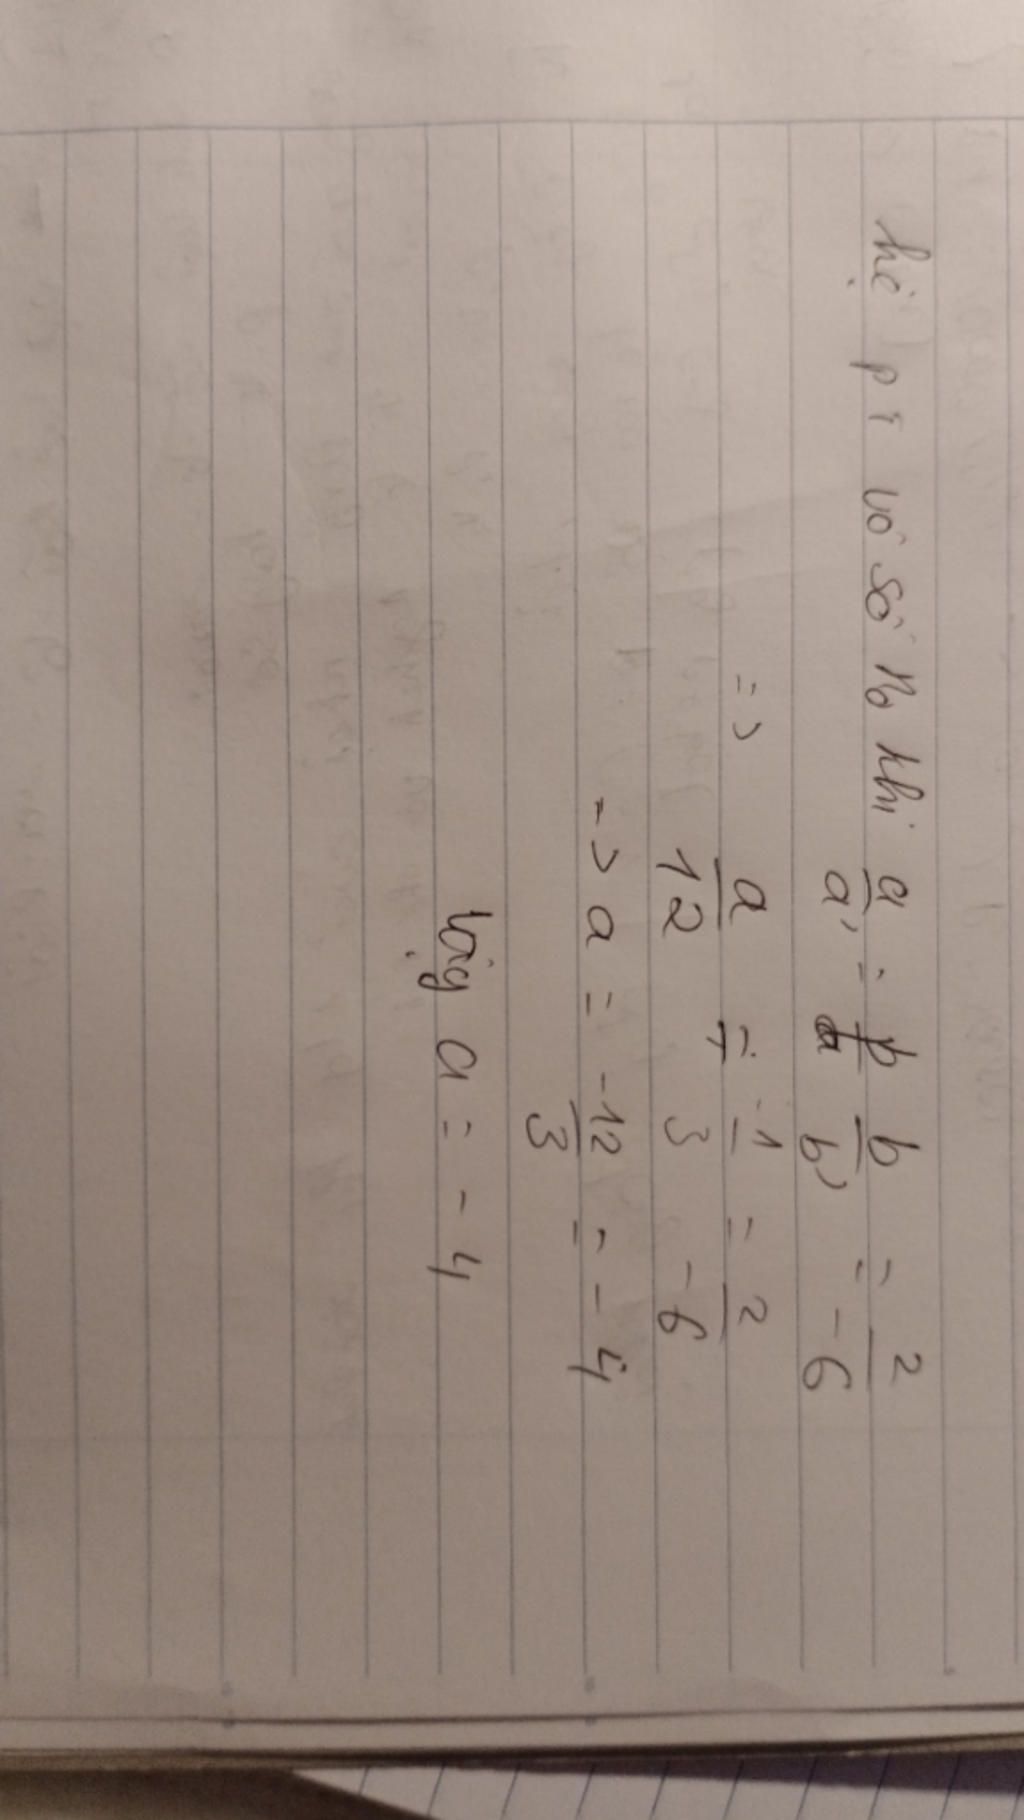 hệ pt vô số no khi a/a' = b/b' = 2/-6
=> a/12 = -1/3 = 2/-6
=> a = -12/3 = -4
Vậy a = -4